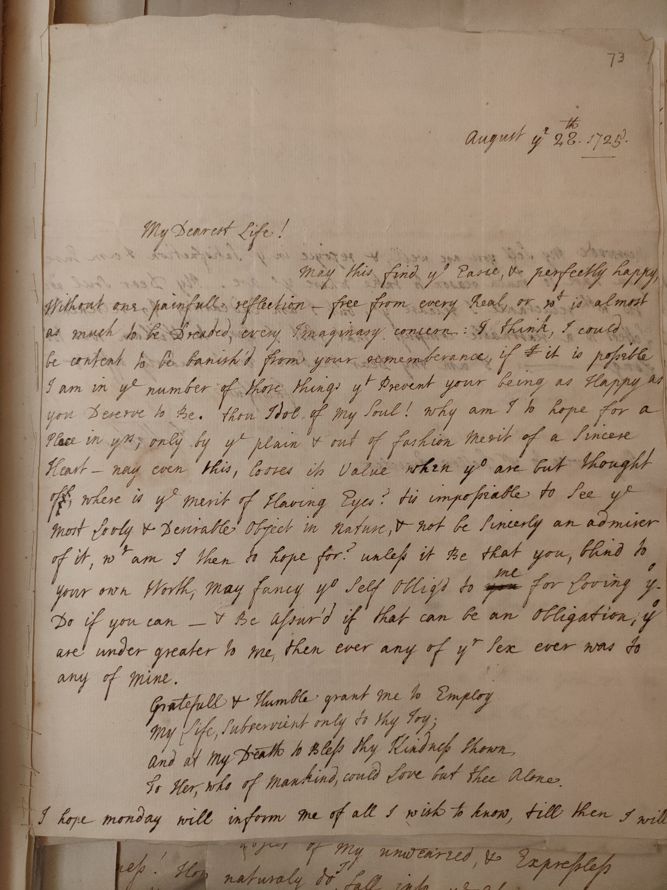 73
August ye 28th 1725.
My Dearest Life!
May this find yo Easie, & perfectly happy,
Without one painfull reflection – free from every Real, or wt is almost
as much to be Dreaded, every Imaginary concern: I think, I could
be content to be banish'd from your rememberance, if it is possible
I am in ye number of those things yt Prevent your being as Happy as
you Deserve to Be. thou Idol of my Soul! why am I to hope for a
Place in yrs; only by ye plain & out of fashion Merit of a Sincere
Heart – nay even this, losses its Value when yo are but thought
off, where is ye merit of Having Eyes? tis impossiable to See ye
most Lovly & Desirable Object in Nature, & not be Sincerly an admirer
of it, wt am I then to hope for? unless it Be that you, blind to
your own Worth, may fancy yo Self Oblig'd to me for Loving y.
Do if you can – & Be Assur'd if that can be an Obligation, yo
are under greater to me, then ever any of yr Sex ever was to
any of mine.
Gratefull & Humble grant me to Employ
My Life, Subservient only to thy Joy;
and at My Death to Bless thy Kindness shown,
To Her, who of Mankind, could Love but thee Alone.
I hope monday will inform me of all I wish to know, till then I will
of my unwearied, & Expressless
ness! How naturaly do I fall into